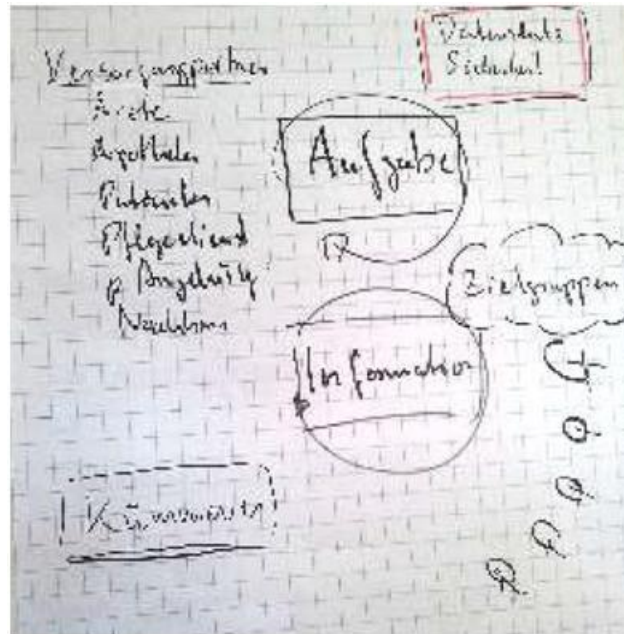 Versorgungspartner
Ärzte
Apotheken
Patienten
Pflegedienst
Angehörige
Nachbarn
Datenschutz
Sicherheit
Aufgabe
Zielgruppen
Information